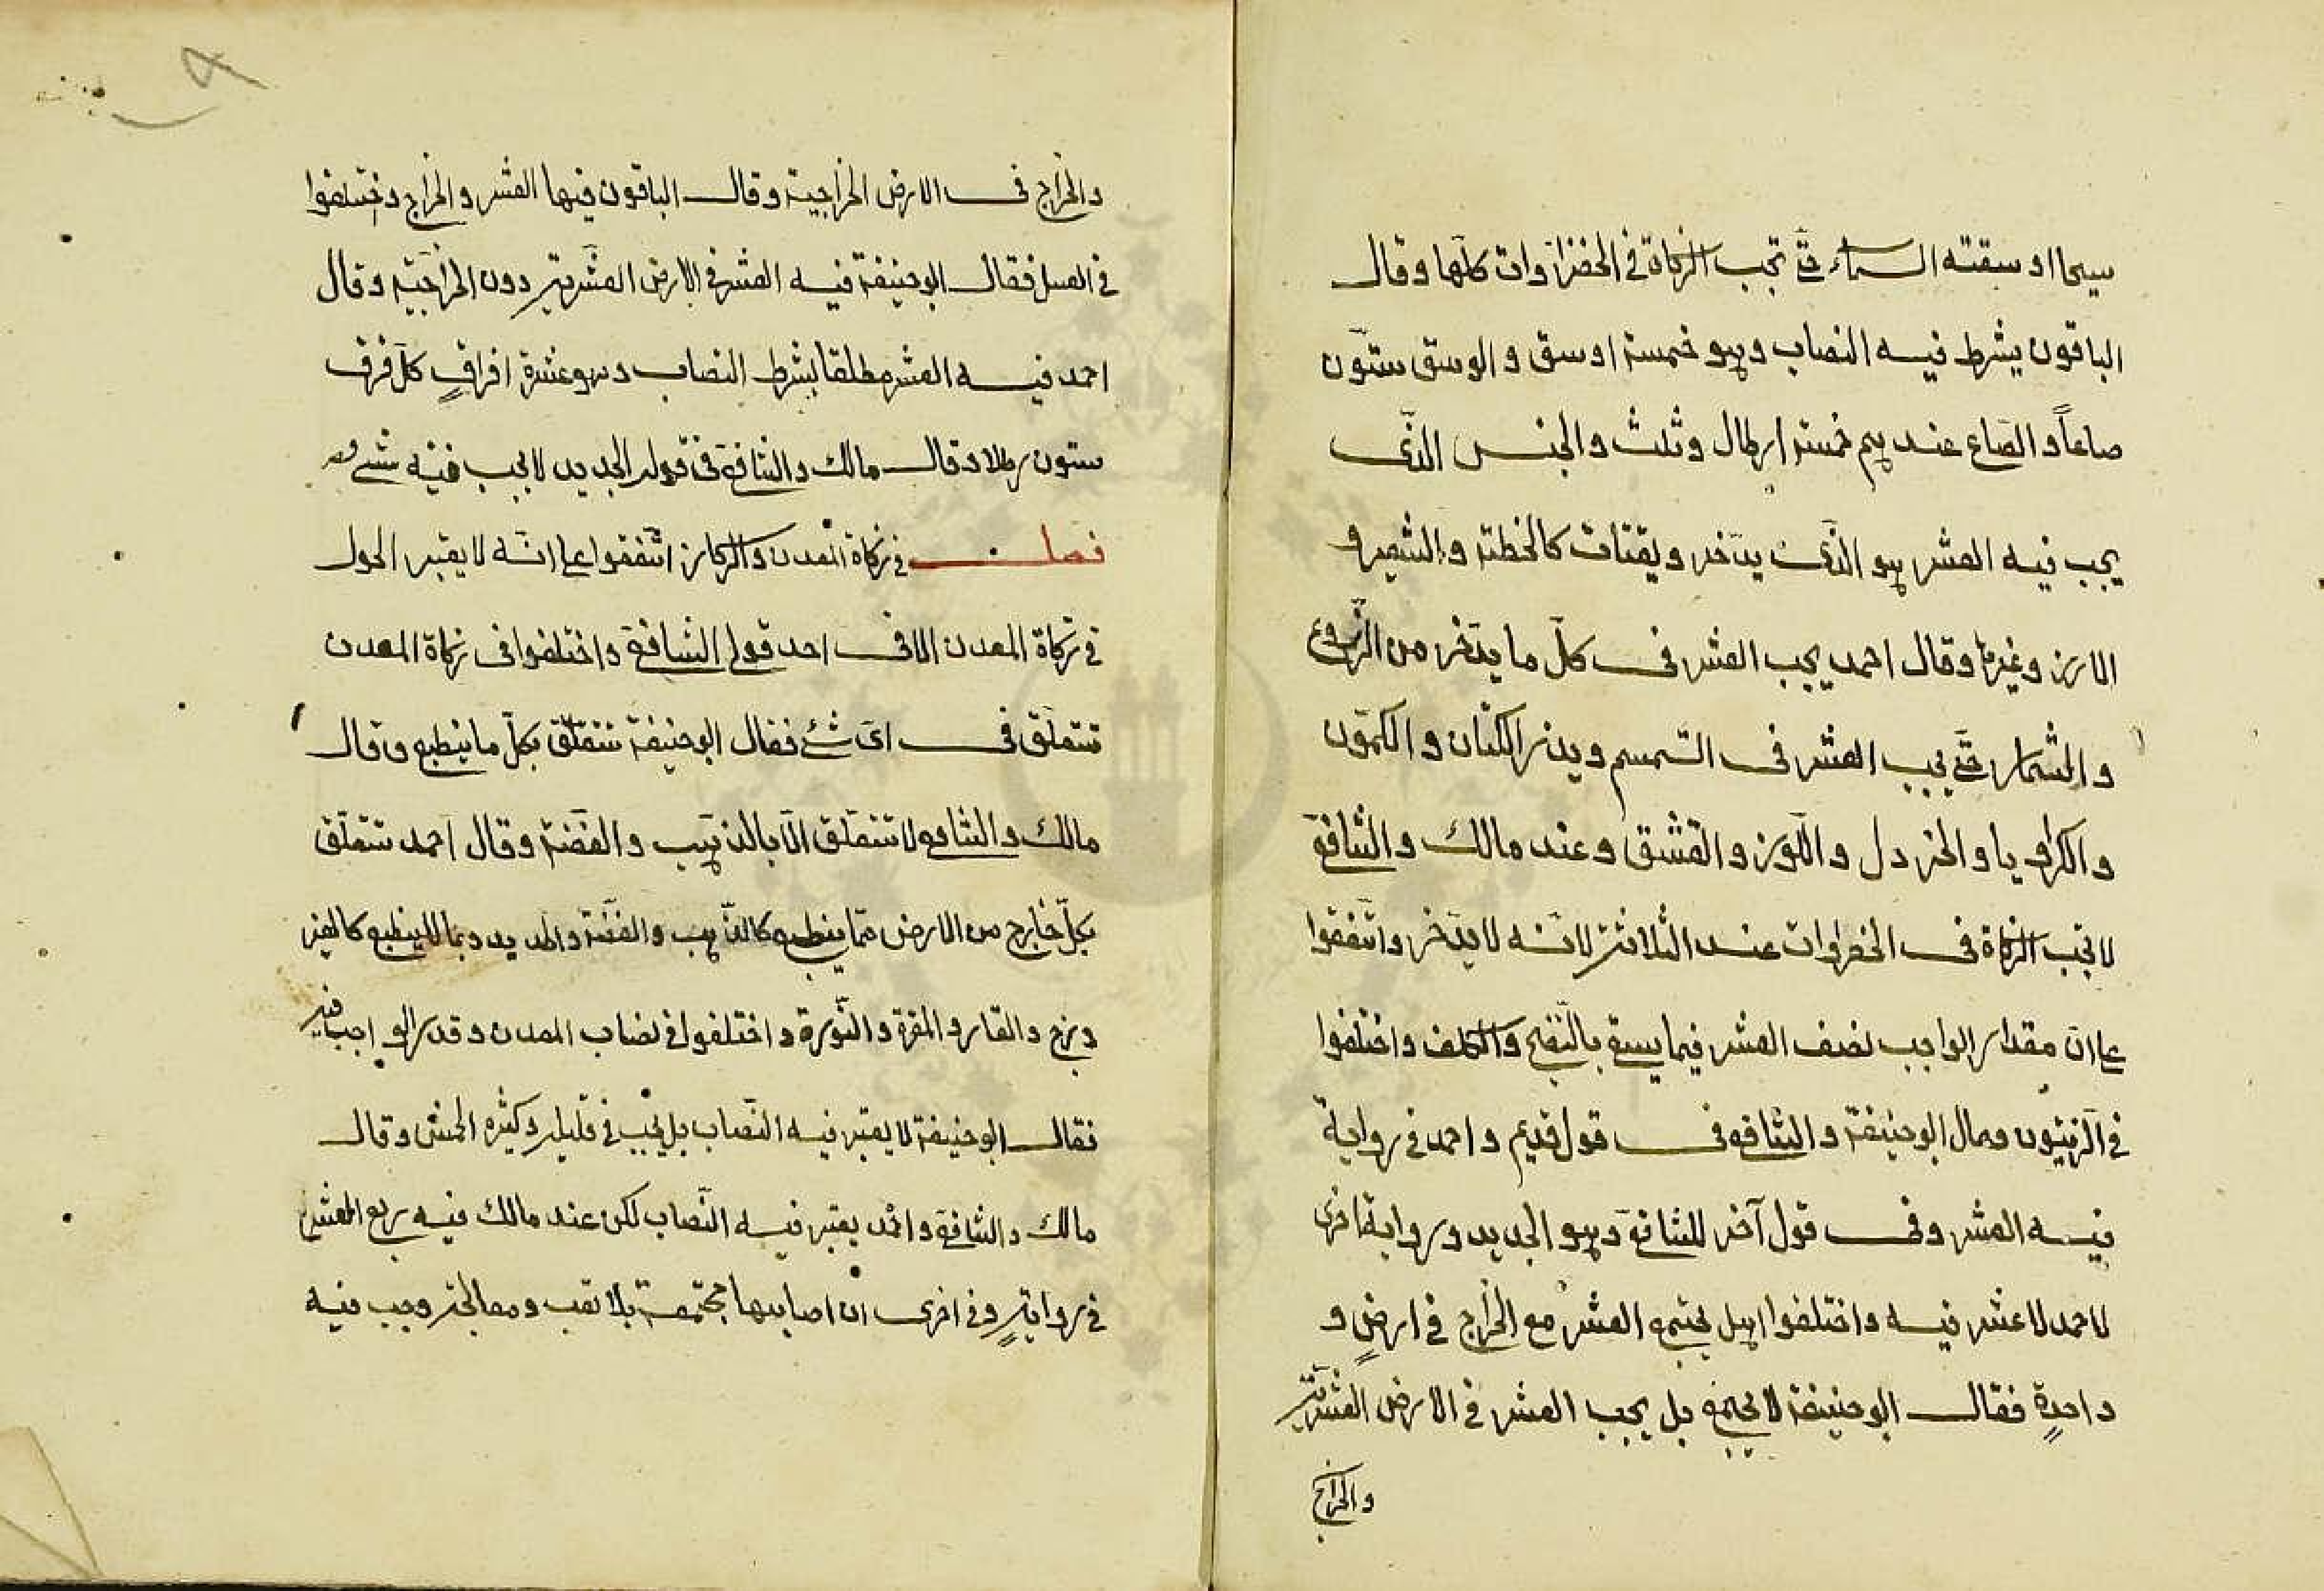 سيحا او سقته السماء حتى تجب الزكاة في الخضراوات كلّها وقال
الباقون يشرط فيه النصاب وهو خمسة اوسق والوسق ستّون
صاعاً والصّاع عندهم خمسة ارطال وثلث والجنس الذّى
يجب فيه العشر هو الذّى يدّخر ويقتات كالحنطة والشعير و
الارز وغيرها وقال احمد يجب العشر فى كلّ ما يدّخر من الزّروع
والثمار حتّى يجب العشر فى السّمسم وبذر الكتان والكمّون
والكراويا والخردل واللّوز والفستق وعند مالك والشافعى
لا تجب الزكاة فى الخضراوات عند الثلاثة لانّه لا يدّخر واتّفقوا
على ان مقدار الواجب نصف العشر فيما يسقى بالنّضح والكلف واختلفوا
في الزّيتون فقال ابو حنيفة والشافعى فى قول قديم واحمد في رواية
فيه العشر وفى قول آخر للشافعى وهو الجديد ورواية اخرى
لاحمد لا عشر فيه واختلفوا هل يجتمع العشر مع الخراج في ارضٍ و
واحدةٍ فقال ابو حنيفة لا يجتمع بل يجب العشر في الارض العشريّة
والخراج
والخراج فى الارض الخراجية وقال الباقون فيها العشر والخراج واختلفوا
في العسل فقال ابو حنيفة فيه العشر في الارض العشّرية دون الخراجيّة وقال
احمد فيه العشر مطلقا بشرط النصاب وهو عشرة افراقٍ كلّ فرق
ستون رطلا وقال مالك والشافعى فى قوله الجديد لا يجب فيه شئ
فصل في زكاة المعدن والركاز اتّفقوا على انّه لا يعتبر الحول
في زكاة المعدن الا فى احد قولى الشافعى واختلفوا فى زكاة المعدن
تتعلّق فى اىّ شئ فقال ابو حنيفة تتعلّق بكلّ ما ينطبع وقال
مالك والشافعى لا تتعلّق الّا بالذهب والفضّة وقال احمد تتعلّق
بكلّ خارج من الارض ممّا ينطبع كالذّهب والفضّة والحديد وبما لا ينطبع كالفيروزج
والقار والمغرة والنّورة واختلفوا في نصاب المعدن وقدر الواجب فيه
فقال ابو حنيفة لا يعتبر فيه النّصاب بل يجب في قليله وكثيره الخمس وقال
مالك والشافعى واحمد يعتبر فيه النّصاب لكن عند مالك فيه ربع العشر
في روايةٍ وفى اخرى ان اصابها مجتمعة بلا تعب ومعالجة وجب فيه